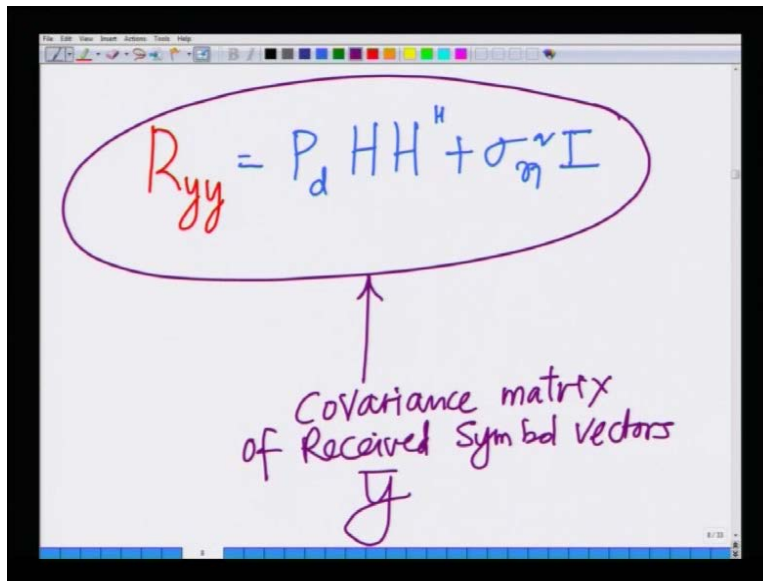 File Edit View Insert Actions Tools Help
R_yy = P_d H H^H + σ_η^2 I
Covariance matrix
of Received Symbol vectors
y̅
8 / 33
8